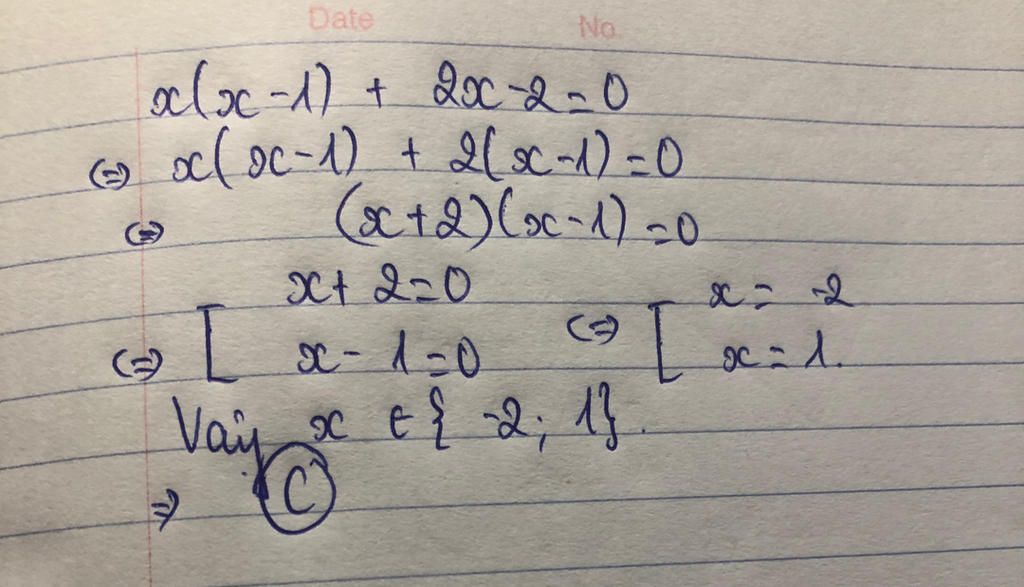 Date No.
x(x-1) + 2x-2=0
(=) x(x-1) + 2(x-1)=0
(=) (x+2)(x-1)=0
(=) [ x+2=0 (=) [ x= -2
x-1=0 x=1.
Vậy x ∈ {-2; 1}.
=> C